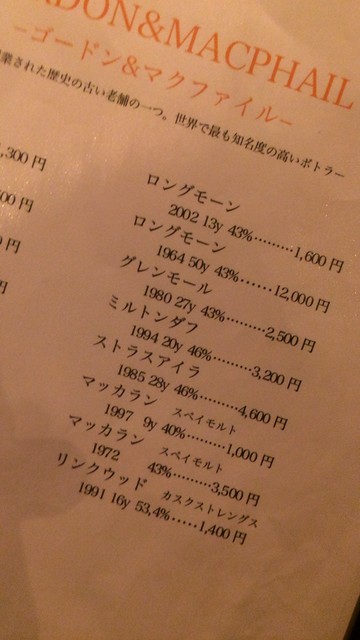 RDON&MACPHAIL
–ゴードン&マクファイル–
業された歴史の古い老舗の一つ。世界で最も知名度の高いボトラー
,300 円
00 円
0 円
円
ロングモーン
2002 13y 43%………1,600 円
ロングモーン
1964 50y 43%……12,000 円
グレンモール
1980 27y 43%………2,500 円
ミルトンダフ
1994 20y 46%………3,200 円
ストラスアイラ
1985 28y 46%………4,600 円
マッカラン スペイモルト
1997 9y 40%………1,000 円
マッカラン スペイモルト
1972 43%………3,500 円
リンクウッド カスクストレングス
1991 16y 53,4%·····1,400 円